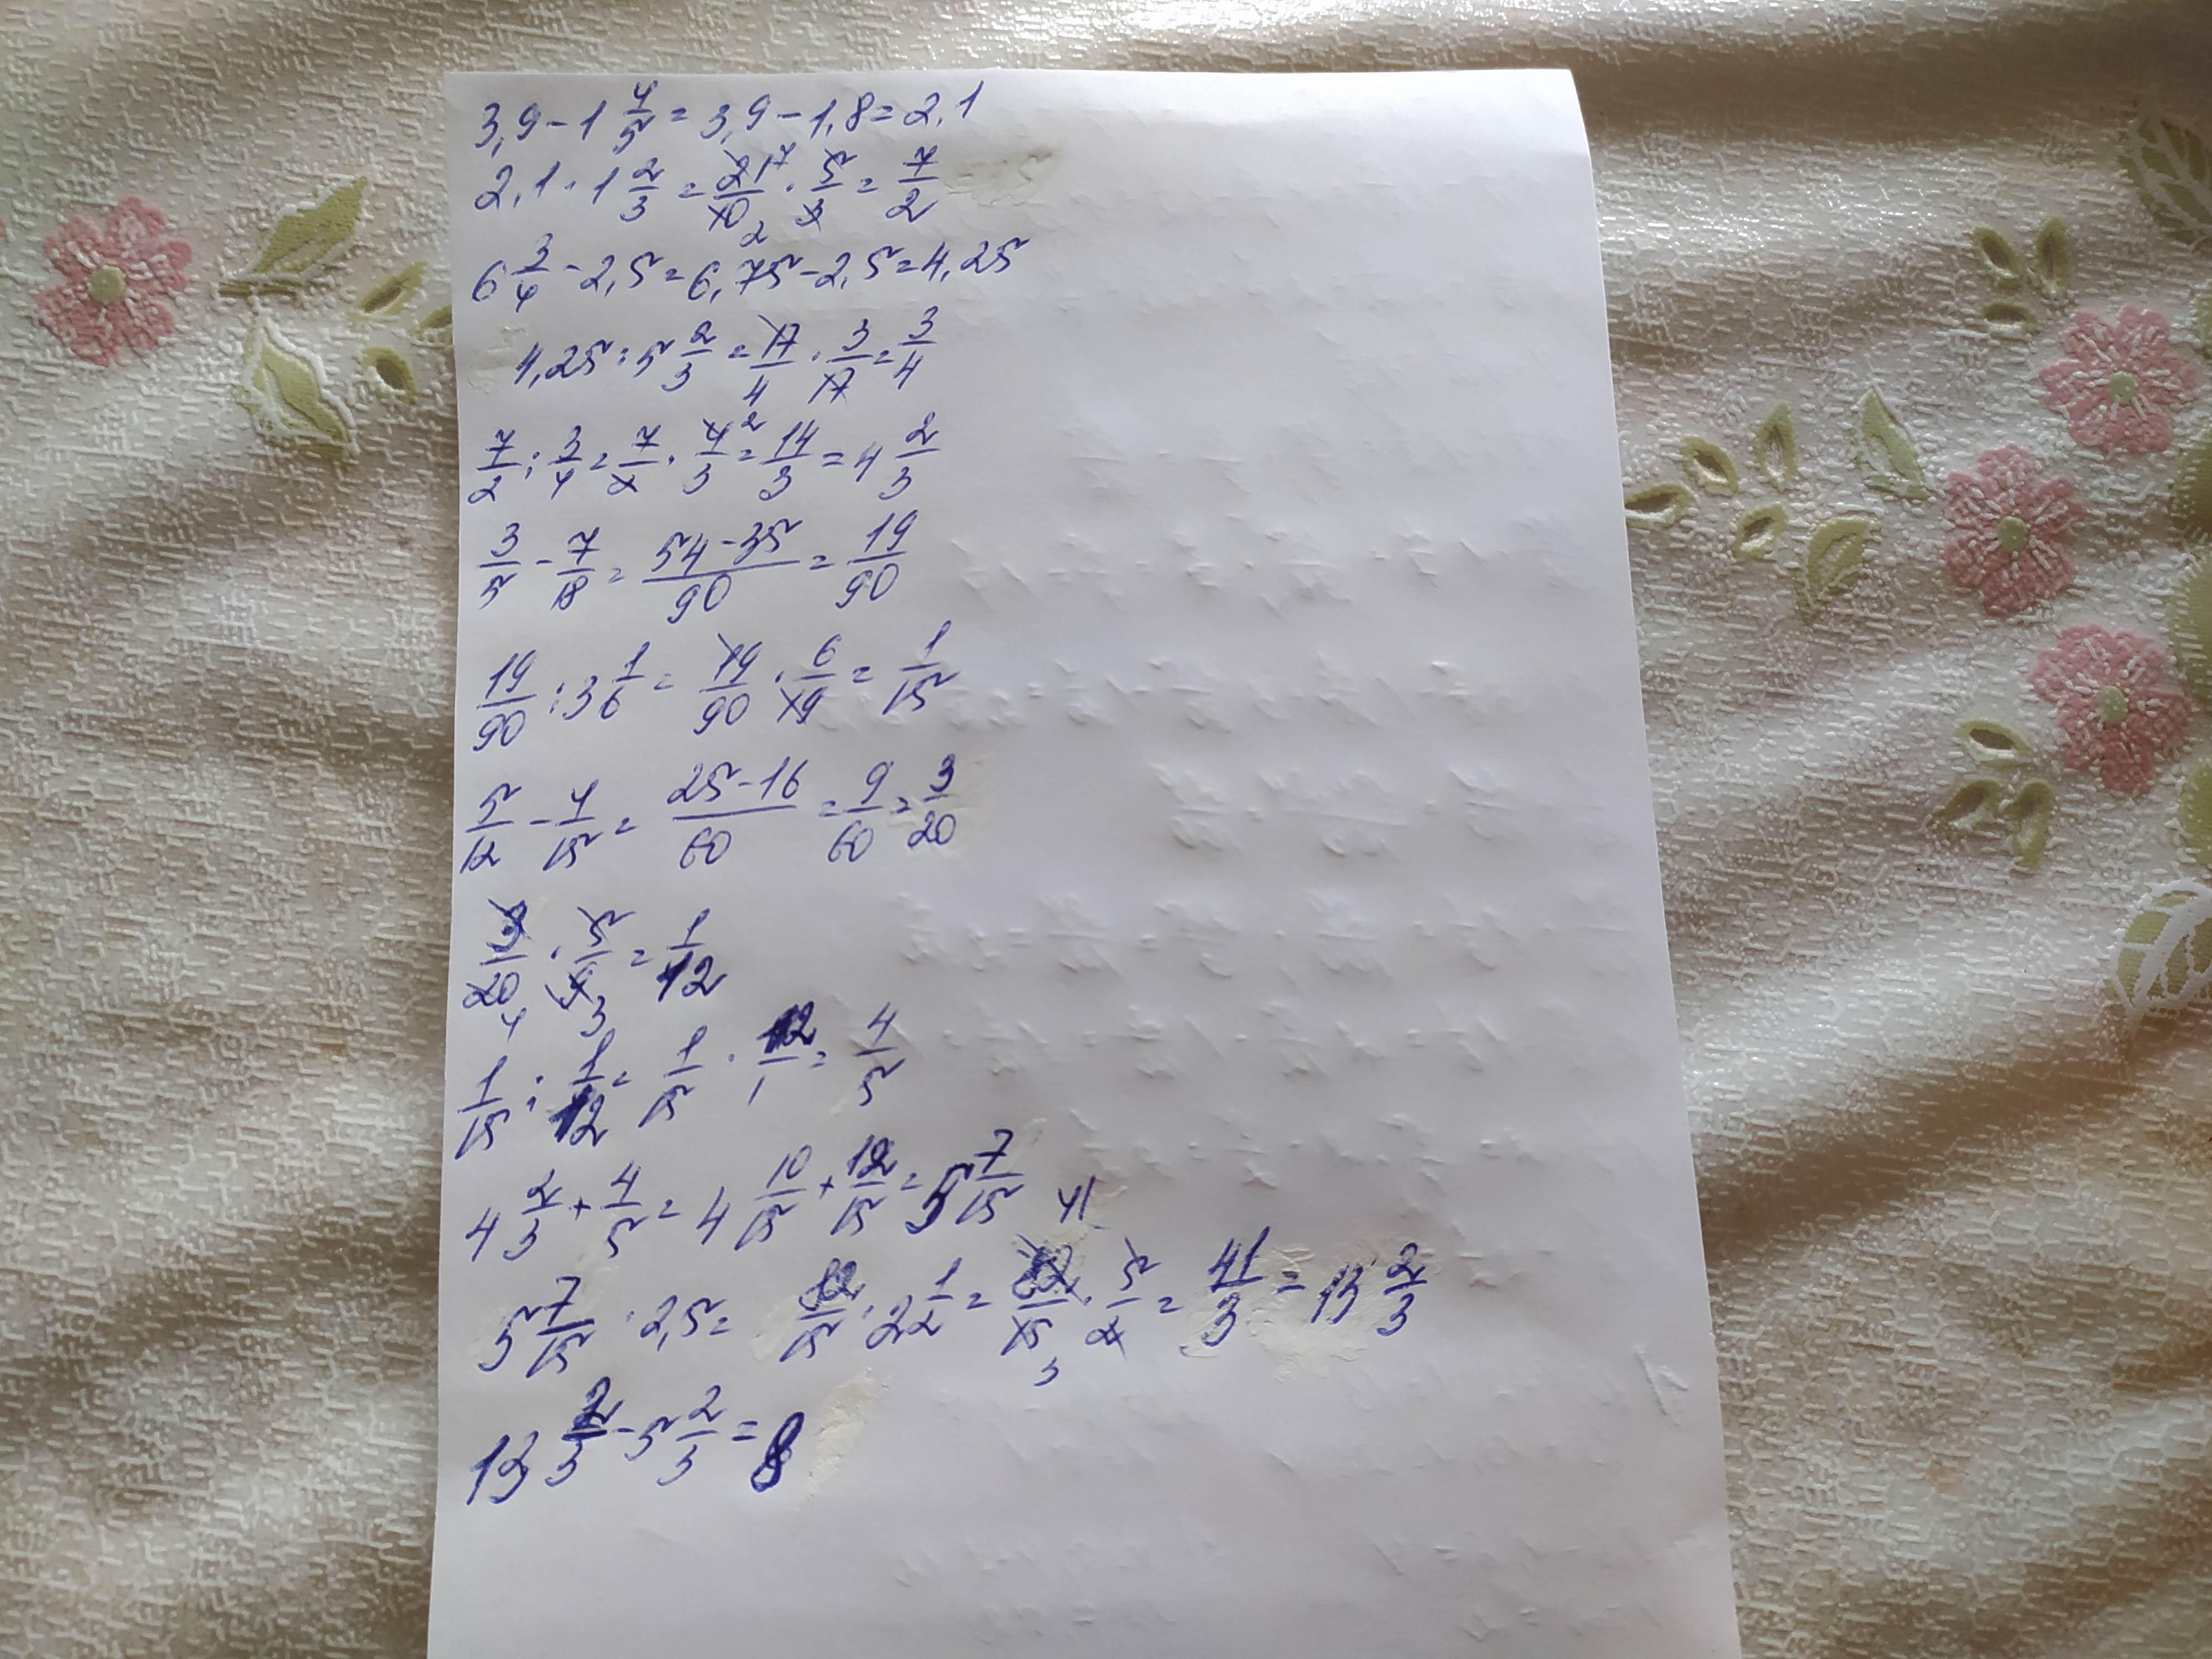 3,9 - 1 4/5 = 3,9 - 1,8 = 2,1
2,1 · 1 2/3 = 21/10 · 5/3 = 7/2
6 3/4 - 2,5 = 6,75 - 2,5 = 4,25
4,25 : 5 2/3 = 17/4 · 3/17 = 3/4
7/2 : 3/4 = 7/2 · 4/3 = 14/3 = 4 2/3
3/5 - 7/18 = 54-35/90 = 19/90
19/90 : 3 1/6 = 19/90 · 6/19 = 1/15
5/12 - 4/15 = 25-16/60 = 9/60 = 3/20
3/20 · 5/9 = 1/12
1/15 : 1/12 = 1/15 · 12/1 = 4/5
4 2/3 + 4/5 = 4 10/15 + 12/15 = 5 7/15
5 7/15 · 2,5 = 82/15 · 2 1/2 = 82/15 · 5/2 = 41/3 = 13 2/3
13 2/3 - 5 2/3 = 8